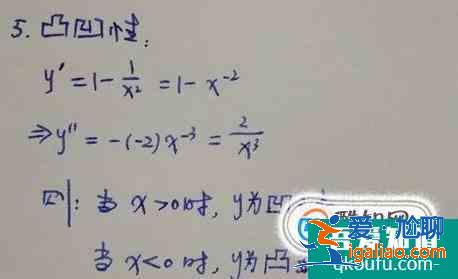 5. 凸凹性:
y' = 1 - 1/x² = 1 - x⁻²
⇒ y'' = -(-2)x⁻³ = 2/x³
则: 当 x>0时, y为凹
当 x<0时, y为凸
爱尬聊
igaliao.com
qkoufu.com